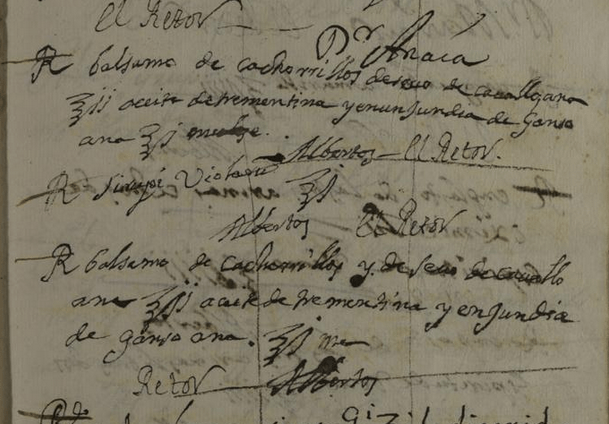 El Retor
Dr Anaia
R balsamo de cachorrillos de sevo de cavallo ana
ʒij aceite de trementina y enxundia de ganso
ana ʒj mesce.
Albertos El Retor.
R Sirupi Violati ʒj
Albertos El Retor
R balsamo de cachorrillos y de sevo de cavallo
ana ʒij aceite de trementina y enjundia
de ganso ana. ʒj me
Retor Albertos